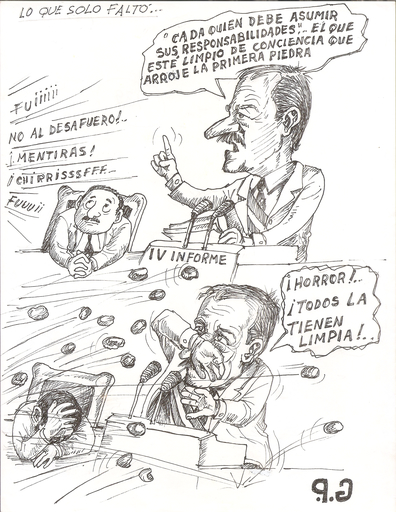 LO QUE SOLO FALTO...
"CADA QUIEN DEBE ASUMIR
SUS RESPONSABILIDADES"... EL QUE
ESTÉ LIMPIO DE CONCIENCIA QUE
ARROJE LA PRIMERA PIEDRA
FUiiiiii
NO AL DESAFUERO!..
¡MENTIRAS!
¡CHIRRISSSFFF...
FUUUii
IV INFORME
¡HORROR!..
¡TODOS LA
TIENEN
LIMPIA!..
G.P.